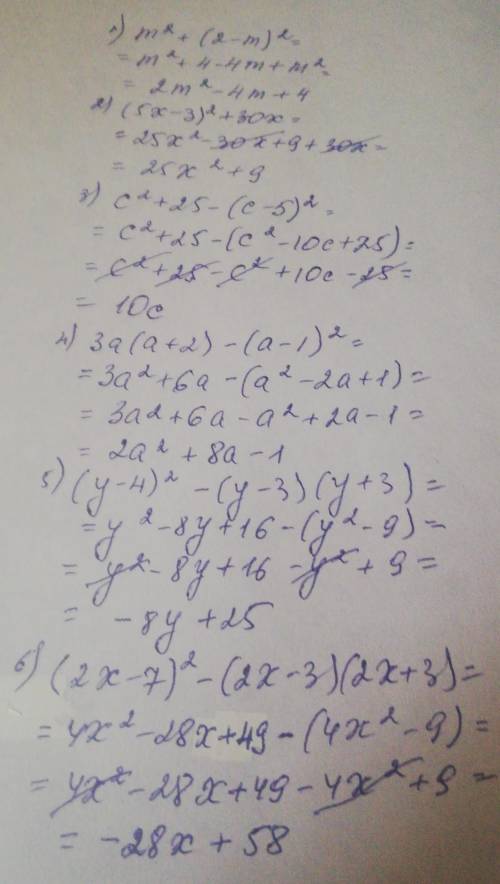 1) m² + (2-m)² =
= m² + 4 - 4m + m² =
= 2m² - 4m + 4
2) (5x-3)² + 30x =
= 25x² - 30x + 9 + 30x =
= 25x² + 9
3) c² + 25 - (c-5)² =
= c² + 25 - (c² - 10c + 25) =
= c² + 25 - c² + 10c - 25 =
= 10c
4) 3a(a+2) - (a-1)² =
= 3a² + 6a - (a² - 2a + 1) =
= 3a² + 6a - a² + 2a - 1 =
= 2a² + 8a - 1
5) (y-4)² - (y-3)(y+3) =
= y² - 8y + 16 - (y² - 9) =
= y² - 8y + 16 - y² + 9 =
= -8y + 25
6) (2x-7)² - (2x-3)(2x+3) =
= 4x² - 28x + 49 - (4x² - 9) =
= 4x² - 28x + 49 - 4x² + 9 =
= -28x + 58